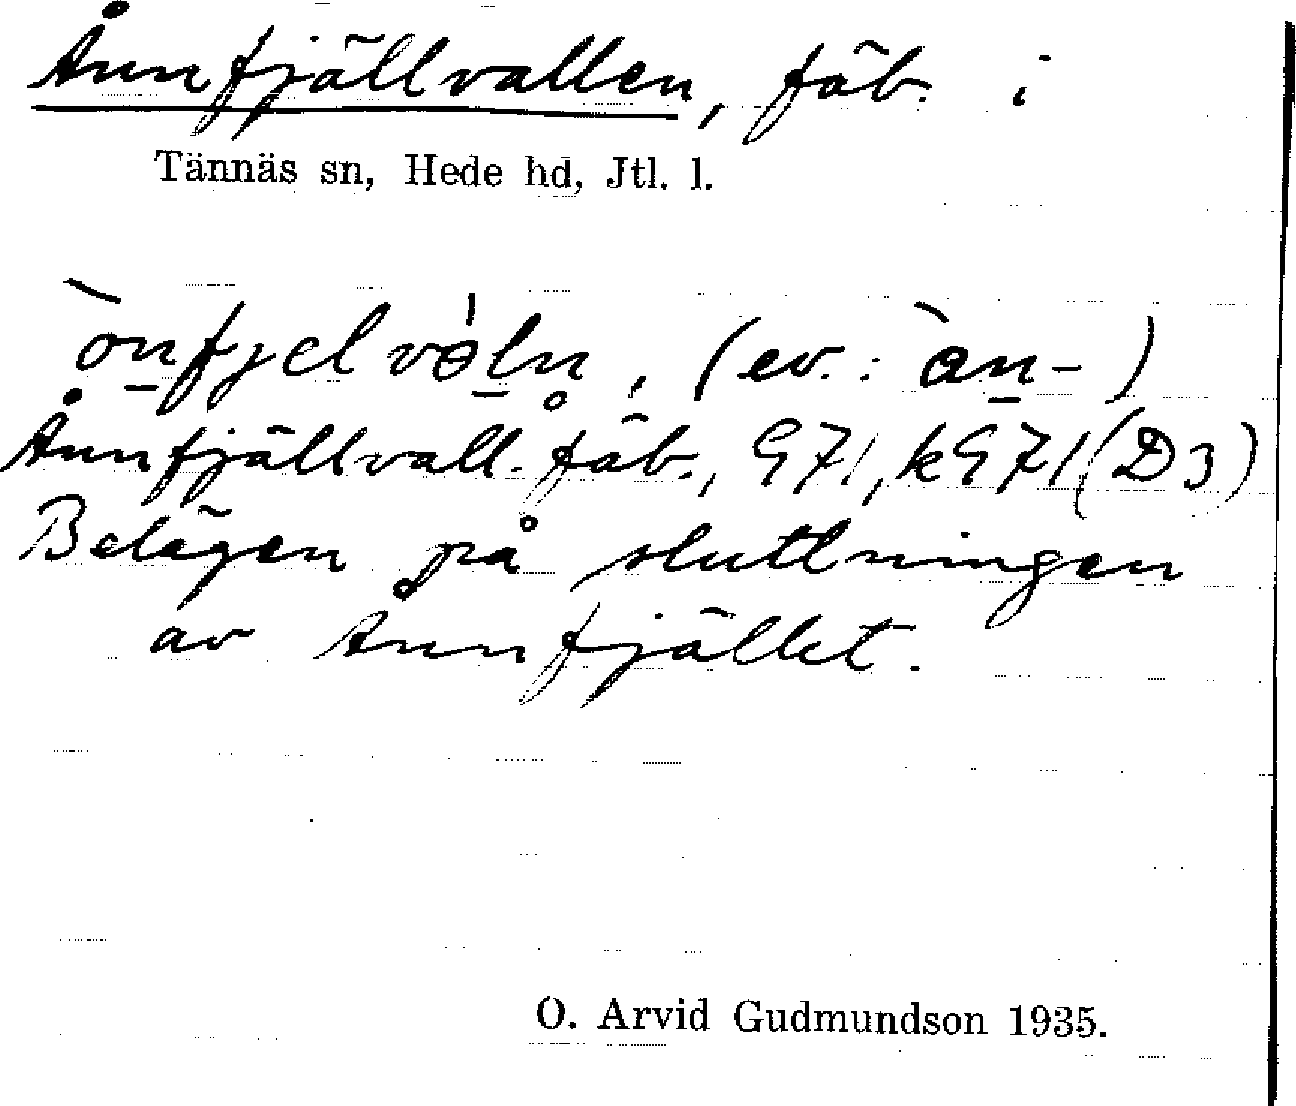 Ånnfjällvallen, fäb. i
Tännäs sn, Hede hd, Jtl. l.
ònfjelvọln, (ev.: àn-)
Ånnfjällvall. fåb., G 71, k G 71 (D3)
Belägen på sluttningen
av Ånnfjället.
O. Arvid Gudmundson 1935.